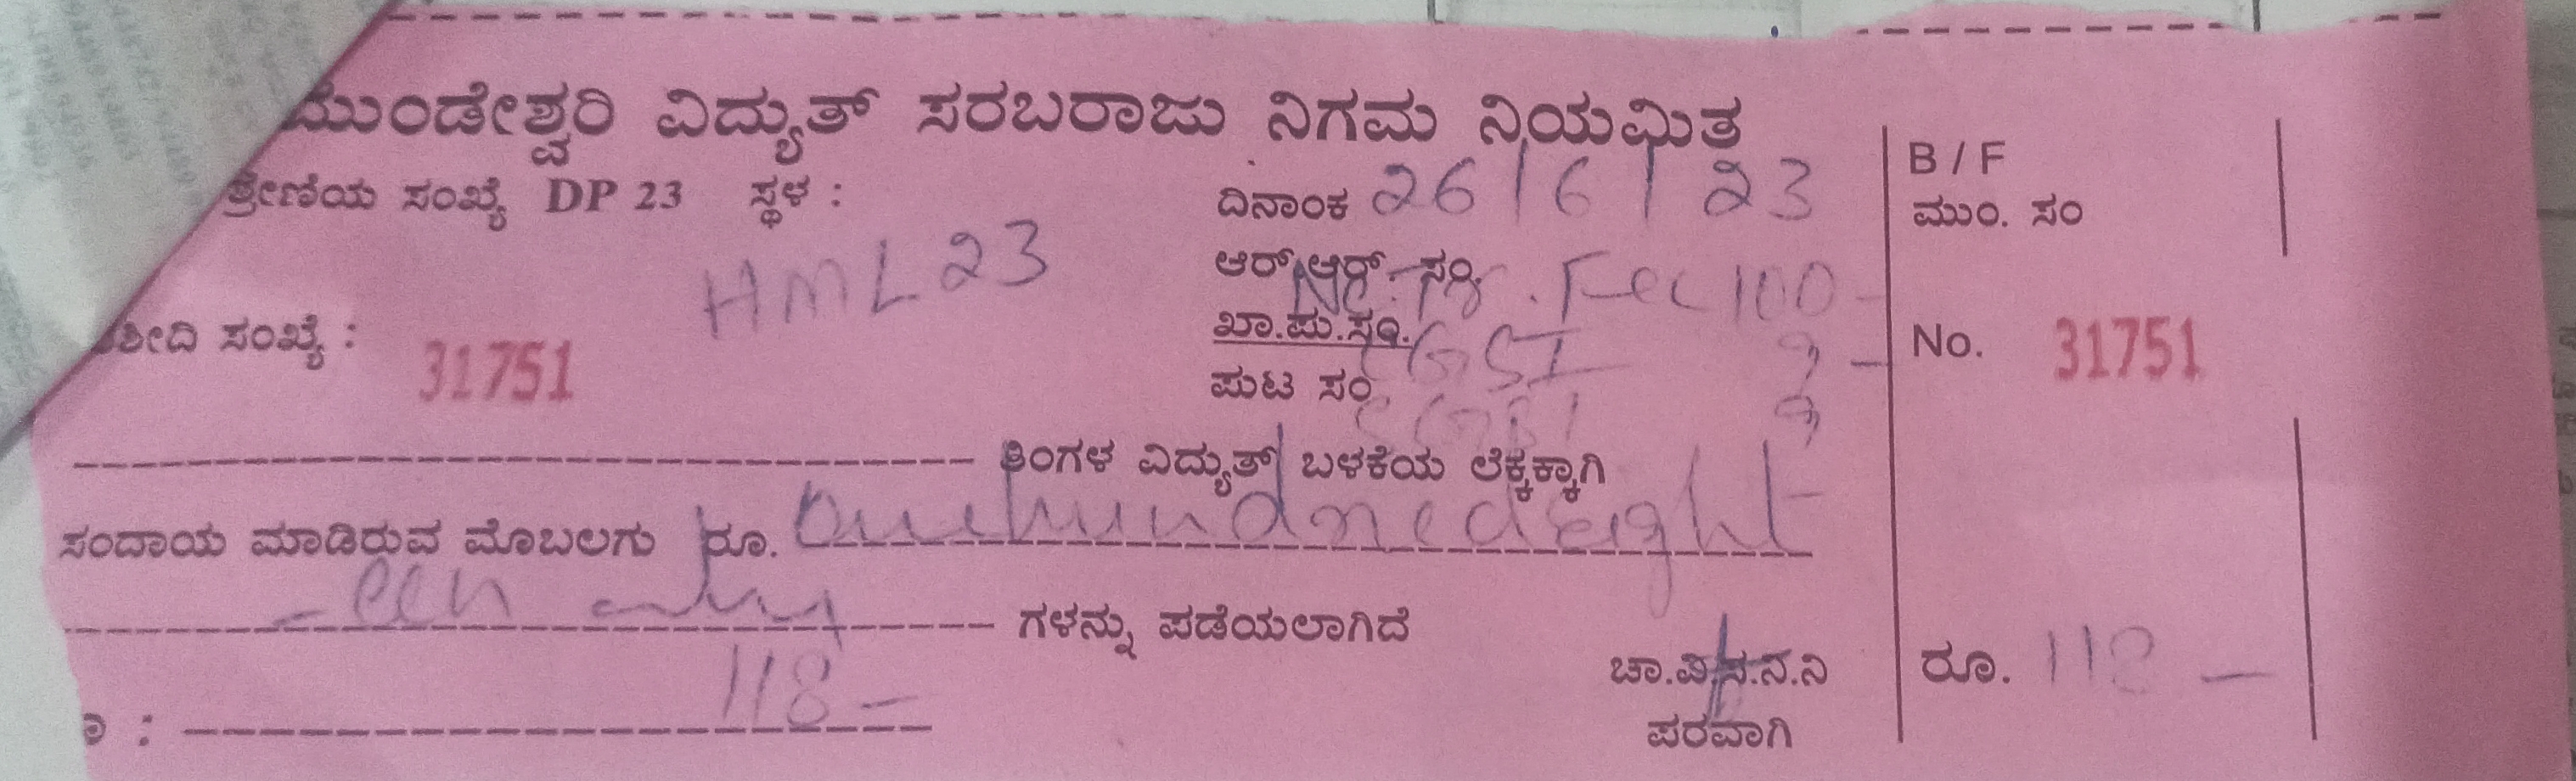 ಮುಂಡೇಶ್ವರಿ ವಿದ್ಯುತ್ ಸರಬರಾಜು ನಿಗಮ ನಿಯಮಿತ
ಶ್ರೇಣಿಯ ಸಂಖ್ಯೆ DP 23 ಸ್ಥಳ :
ದಿನಾಂಕ 26/6/23
HML 23
ಆರ್.ಆರ್. ಸಂ. Fee 100-
ಖಾ.ಪು.ಸಂ.
CGST 9-
ಪುಟ ಸಂ
SGST 9
ಶೀದಿ ಸಂಖ್ಯೆ : 31751
ತಿಂಗಳ ವಿದ್ಯುತ್ ಬಳಕೆಯ ಲೆಕ್ಕಕ್ಕಾಗಿ
ಸಂದಾಯ ಮಾಡಿರುವ ಮೊಬಲಗು ರೂ. One hundred eight
- een only ಗಳನ್ನು ಪಡೆಯಲಾಗಿದೆ
: 118-
ಚಾ.ವಿ.ಸ.ನ.ನಿ
ಪರವಾಗಿ
B / F
ಮುಂ. ಸಂ
No. 31751
ರೂ. 118 -